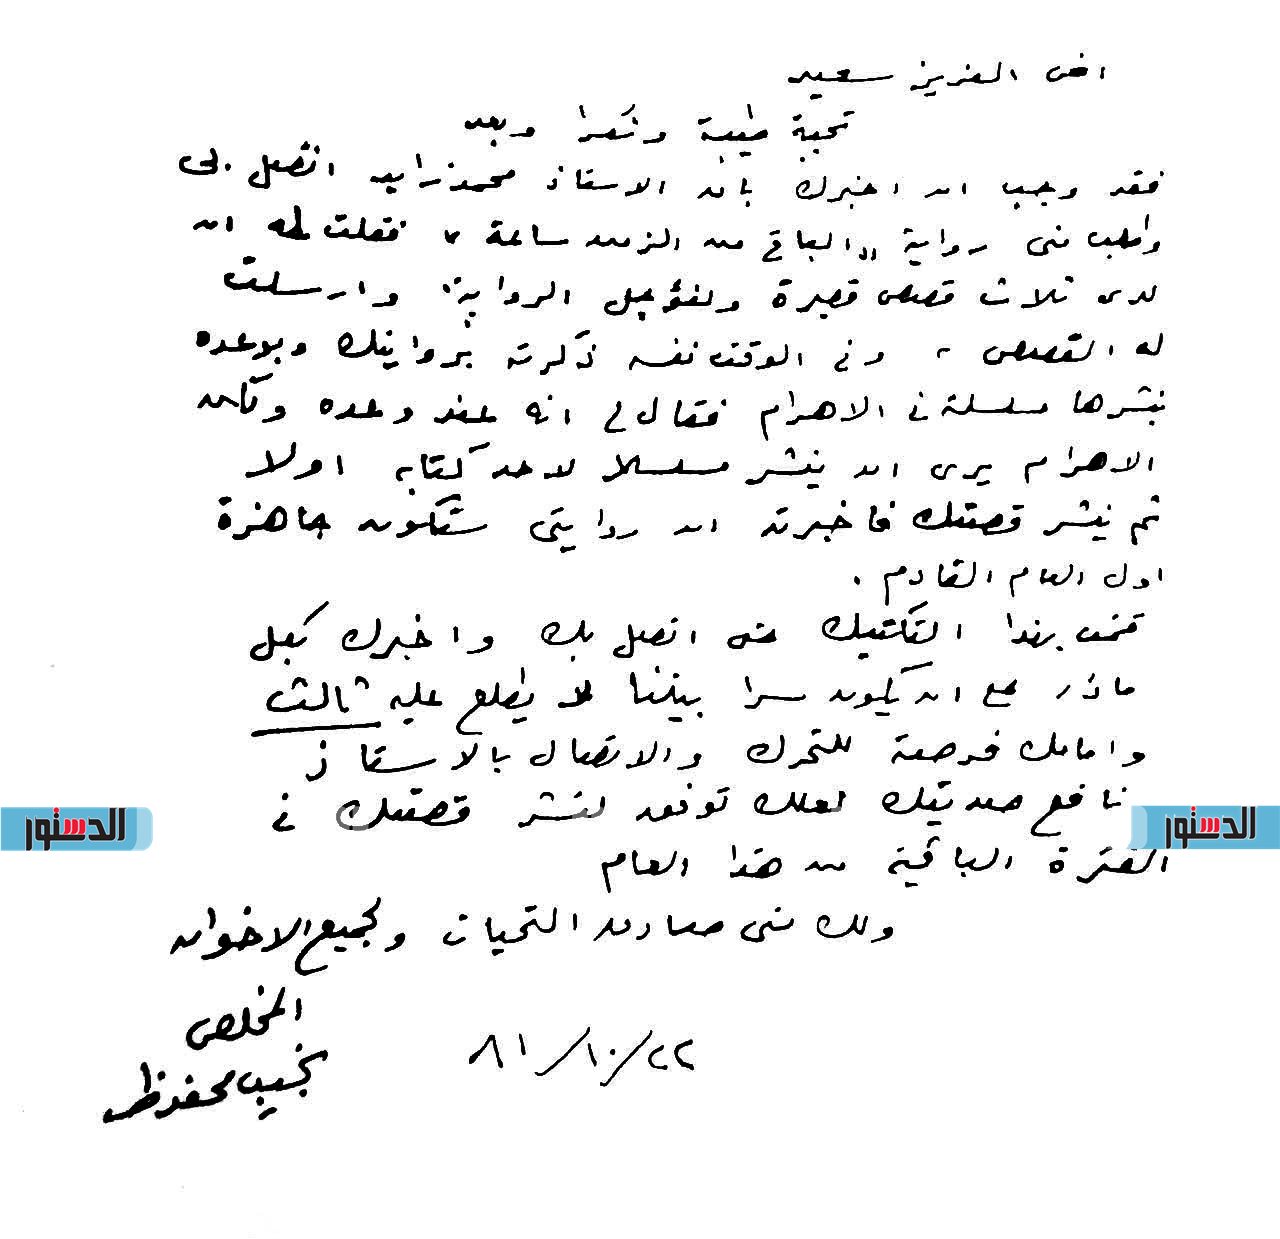 اخى العزيز سعيد
تحية طيبة وشكرا وبعد
فقد وجب ان اخبرك بان الاستاذ محمد زايد اتصل بى
وطلب منى رواية "الباقى من الزمن ساعة" فقلت له ان
لدى ثلاث قصص قصيرة ولنؤجل الرواية، وارسلت
له القصص، وفى الوقت نفسه ذكرته بروايتك وبوعده
بنشرها مسلسلة فى الاهرام فقال لى انه عند وعده ولكن
الاهرام يرى ان ينشر مسلسلا لاحد كتابه اولا
ثم ينشر قصتك فاخبرته ان روايتى ستكون جاهزة
اول العام القادم.
قمت بهذا التكتيك حتى اتصل بك واخبرك بكل
ما دار مع ان يكون سرا بيننا لا يطلع عليه ثالث
وامامك فرصة للتحرك والاتصال بالاستاذ
نافع صديقك لعلك توفق لنشر قصتك فى
الفترة الباقية من هذا العام
ولك منى صادق التحيات ولجميع الاخوان
المخلص
نجيب محفوظ
٢٢/١٠/٨١
الدستور
الدستور